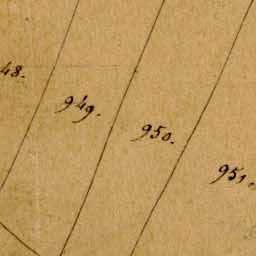 48.
949.
950.
951.